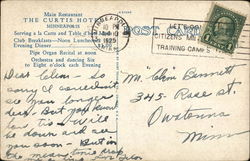 Main Restaurant
THE CURTIS HOTEL
MINNEAPOLIS
Serving a la Carte and Table d'Hote
Club Breakfasts—Noon Luncheons
Evening Dinner
Pipe Organ Recital at noon
Orchestra and dancing six
to Eight o'clock each Evening
POST CARD
1925
LET'S GO!
CITIZENS MILITARY
TRAINING CAMPS
Dear Clem: So
sorry I couldn't
see you longer
dear. But you know
how it is. Will
be down and see
you soon - But in
the meantime
Mr. Clem Bennett
345- Rose St.
Owatonna
Minn